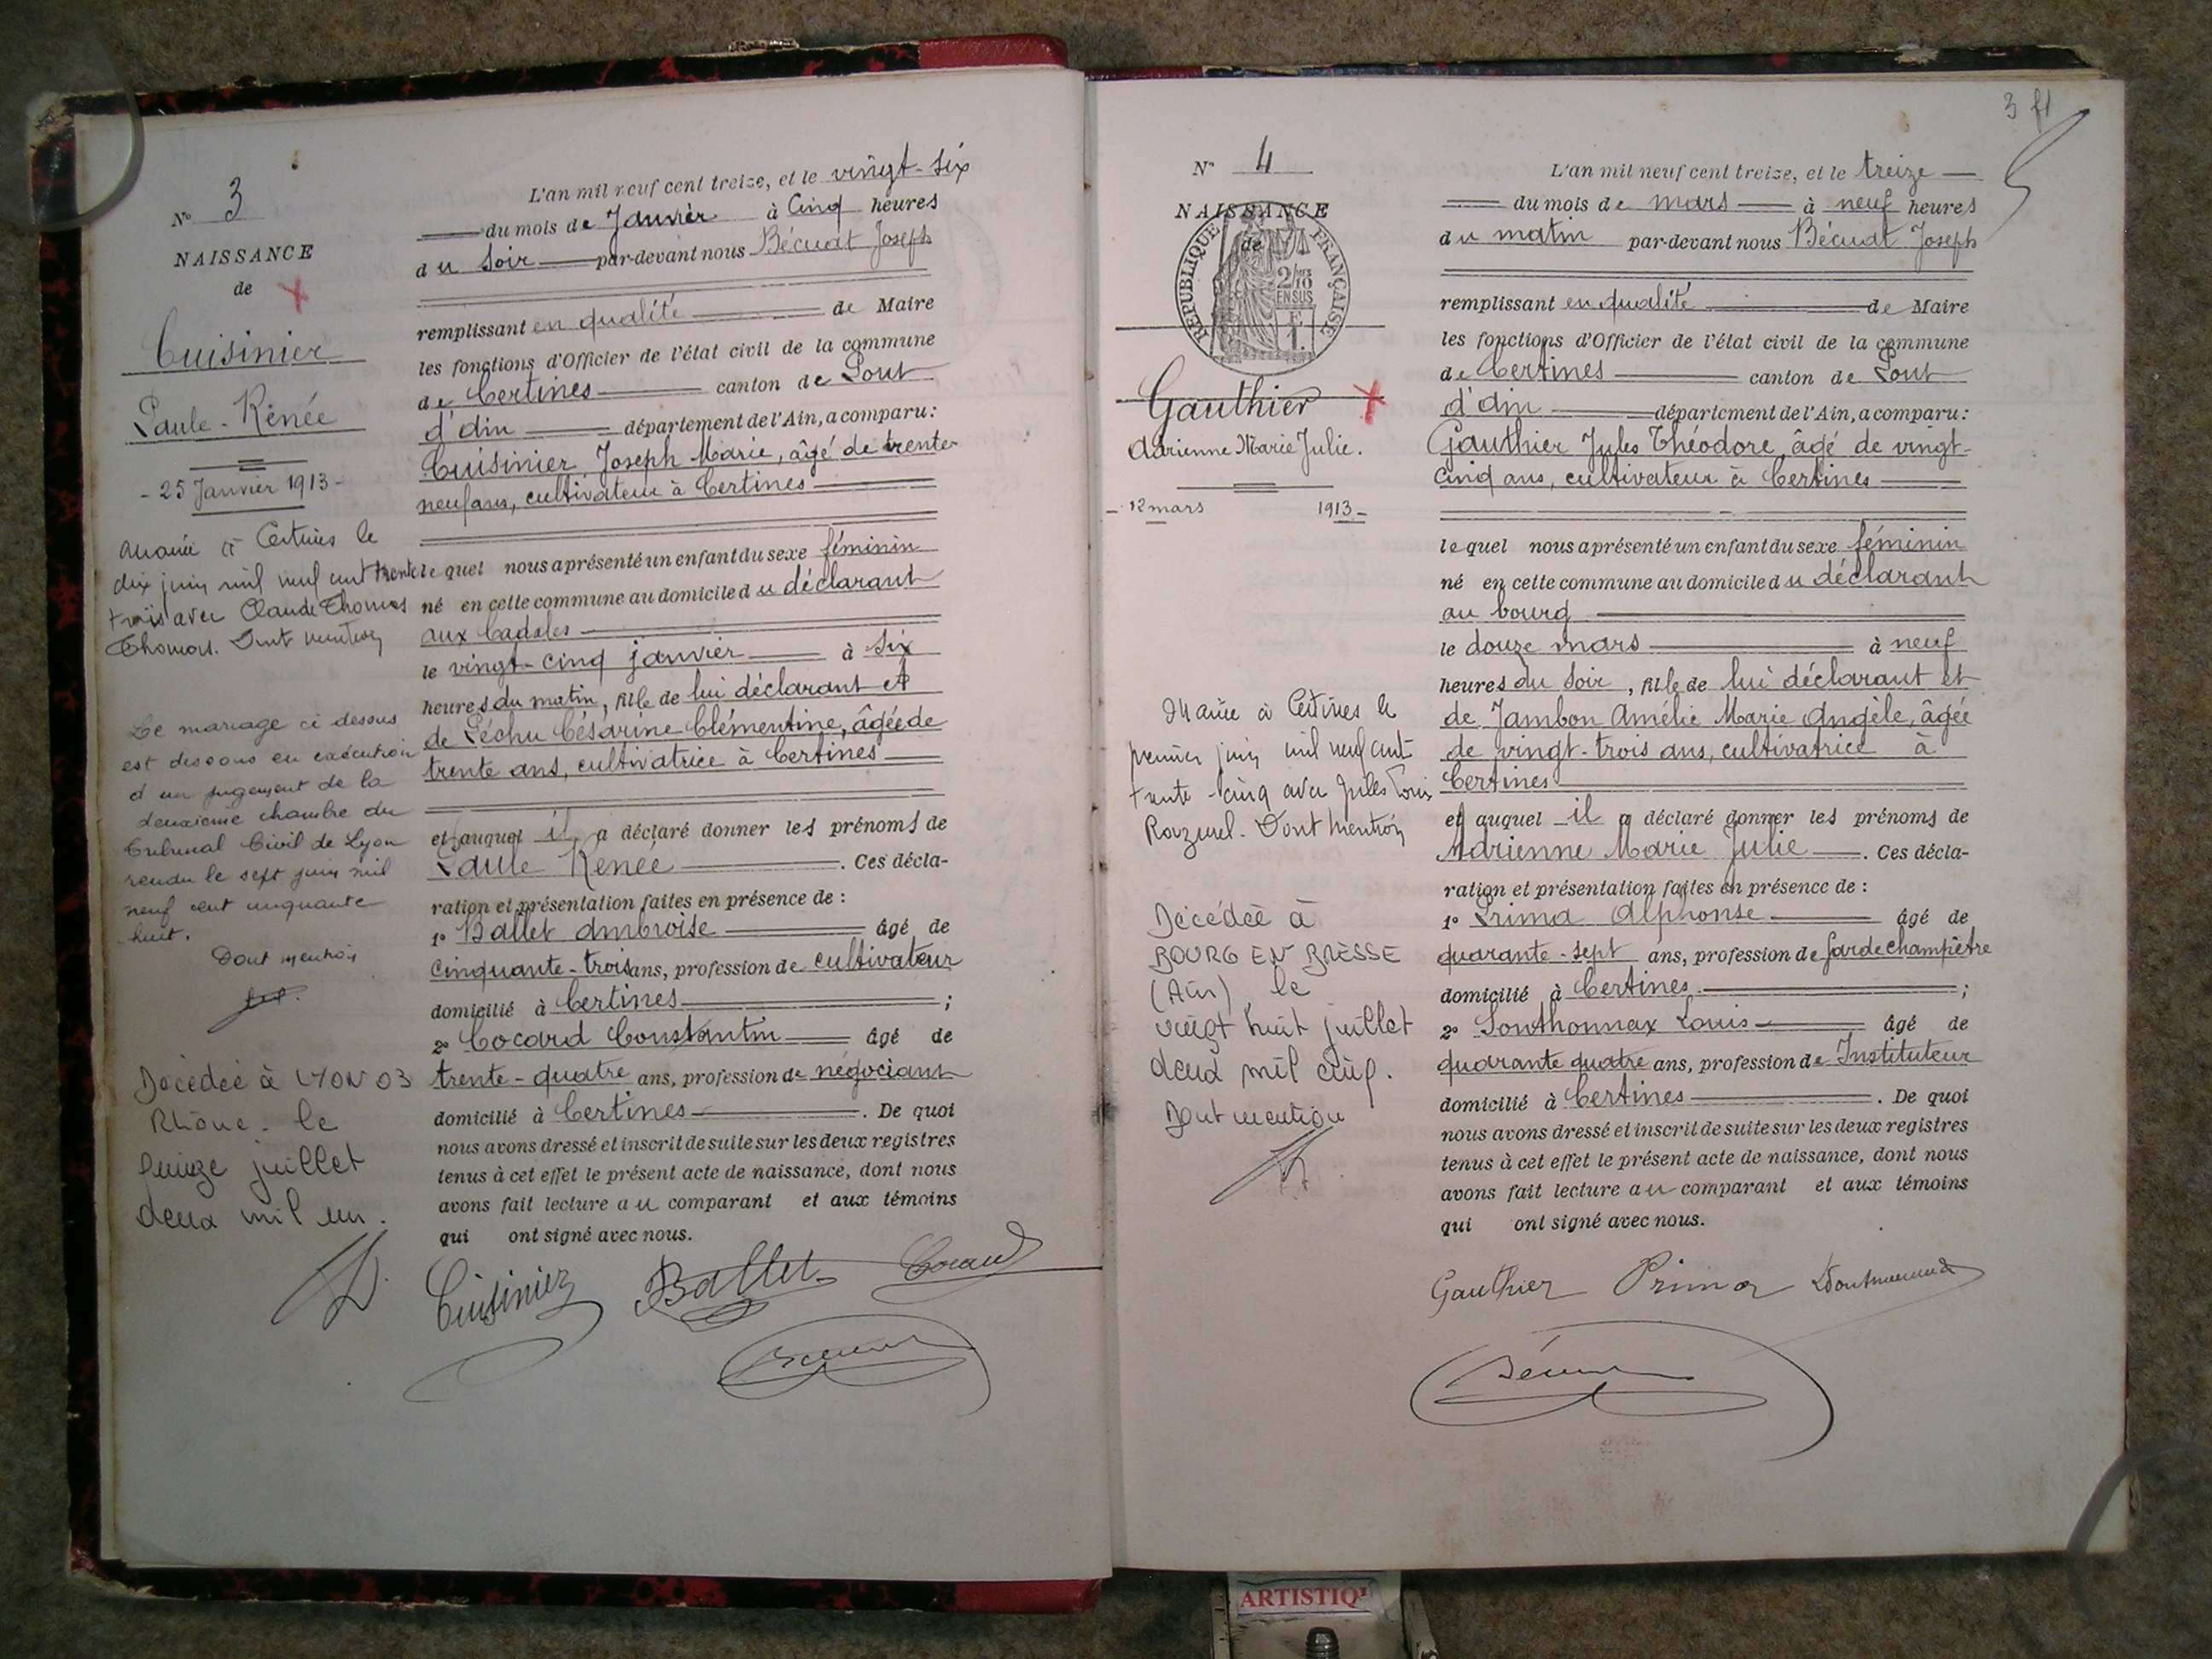 N° 3
NAISSANCE
de
Cuisinier
Paule-Renée
- 25 Janvier 1913 -
Mariée à Certines le
dix juin mil neuf cent trente
trois avec Claude Thomas
Thomas. Dont mention
Le mariage ci dessus
est dissous en exécution
d'un jugement de la
deuxième chambre du
Tribunal Civil de Lyon
rendu le sept juin mil
neuf cent cinquante
huit.
Dont mention
Décédée à LYON 03
Rhône - le
quinze juillet
deux mil un.
L'an mil neuf cent treize, et le vingt-six
du mois de Janvier à Cinq heures
du soir par-devant nous Bécuat Joseph
remplissant en qualité de Maire
les fonctions d'Officier de l'état civil de la commune
de Certines canton de Pont
d'Ain département de l'Ain, a comparu:
Cuisinier Joseph Marie, âgé de trente
neuf ans, cultivateur à Certines
lequel nous a présenté un enfant du sexe féminin
né en cette commune au domicile du déclarant
aux Cadales
le vingt-cinq janvier à six
heures du matin, fille de lui déclarant et
de Péchu Césarine Clémentine, âgée de
trente ans, cultivatrice à Certines
et auquel il a déclaré donner les prénoms de
Paule Renée. Ces décla-
ration et présentation faites en présence de :
1° Ballet Ambroise âgé de
cinquante-trois ans, profession de cultivateur
domicilié à Certines ;
2° Cocard Constantin âgé de
trente-quatre ans, profession de négociant
domicilié à Certines. De quoi
nous avons dressé et inscrit de suite sur les deux registres
tenus à cet effet le présent acte de naissance, dont nous
avons fait lecture au comparant et aux témoins
qui ont signé avec nous.
Cuisinier Ballet Cocard
Bécuat
3 f1
N° 4
NAISSANCE
de
REPUBLIQUE FRANÇAISE
2/10es
EN SUS
E
1.
Gauthier
Adrienne Marie Julie.
- 12 mars 1913 -
Mariée à Certines le
premier juin mil neuf cent
trente-cinq avec Jules Louis
Razurel. Dont mention
Décédée à
BOURG EN BRESSE
(Ain), le
vingt huit juillet
deux mil cinq.
Dont mention
L'an mil neuf cent treize, et le treize
du mois de mars à neuf heures
du matin par-devant nous Bécuat Joseph
remplissant en qualité de Maire
les fonctions d'Officier de l'état civil de la commune
de Certines canton de Pont
d'Ain département de l'Ain, a comparu:
Gauthier Jules Théodore, âgé de vingt-
cinq ans, cultivateur à Certines
lequel nous a présenté un enfant du sexe féminin
né en cette commune au domicile du déclarant
au bourg
le douze mars à neuf
heures du soir, fille de lui déclarant et
de Jambon Amélie Marie Angèle, âgée
de vingt-trois ans, cultivatrice à
Certines
et auquel il a déclaré donner les prénoms de
Adrienne Marie Julie. Ces décla-
ration et présentation faites en présence de :
1° Prima Alphonse âgé de
quarante-sept ans, profession de Garde champêtre
domicilié à Certines ;
2° Sonthonnax Louis âgé de
quarante quatre ans, profession de Instituteur
domicilié à Certines. De quoi
nous avons dressé et inscrit de suite sur les deux registres
tenus à cet effet le présent acte de naissance, dont nous
avons fait lecture au comparant et aux témoins
qui ont signé avec nous.
Gauthier Prima Sonthonnax
Bécuat
ARTISTIQ